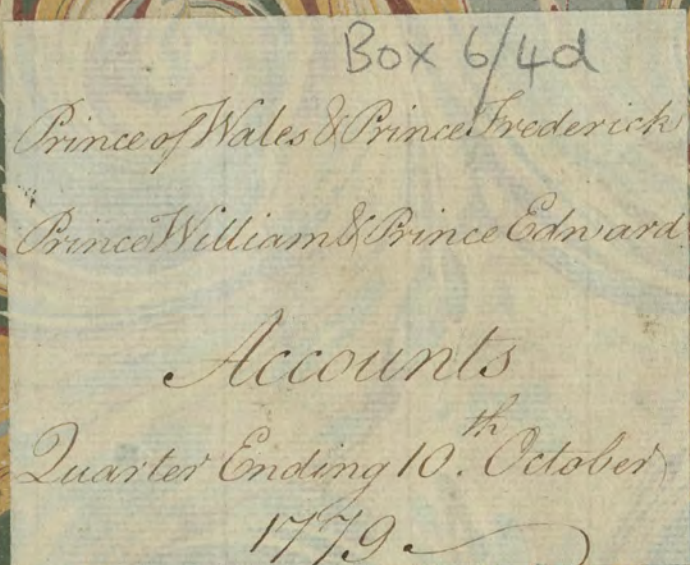 Box 6/4d
Prince of Wales & Prince Frederick
Prince William & Prince Edward
Accounts
Quarter Ending 10.th October
1779